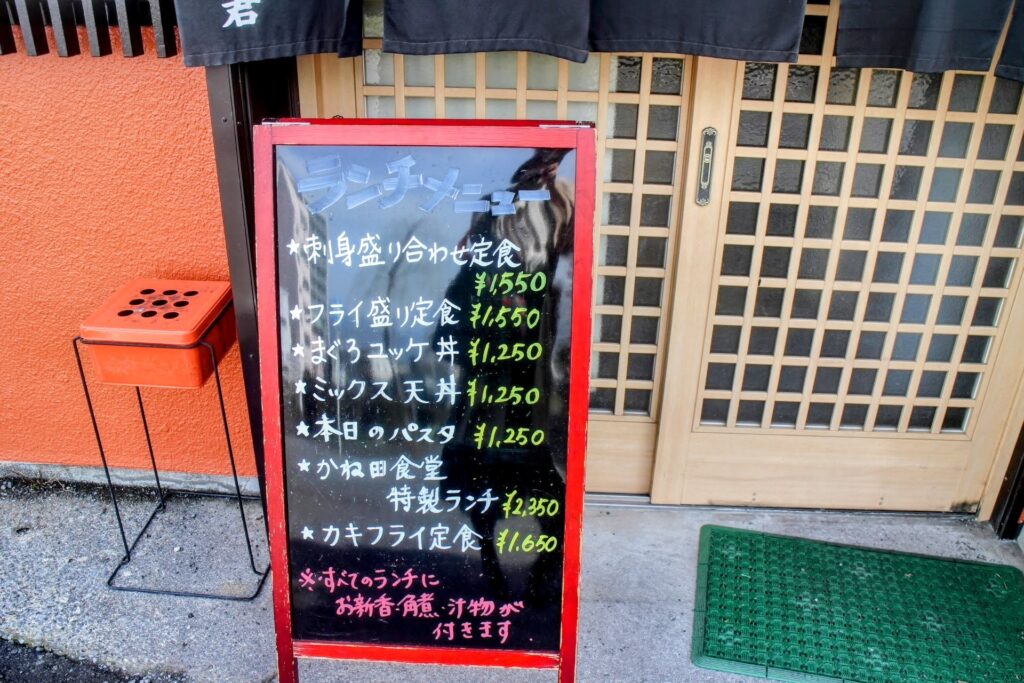 君
ランチメニュー
★刺身盛り合わせ定食
¥1,550
★フライ盛り定食 ¥1,550
★まぐろユッケ丼 ¥1,250
★ミックス天丼 ¥1,250
★本日のパスタ ¥1,250
★かね田食堂
特製ランチ ¥2,350
★カキフライ定食 ¥1,650
※すべてのランチに
お新香・角煮・汁物が
付きます